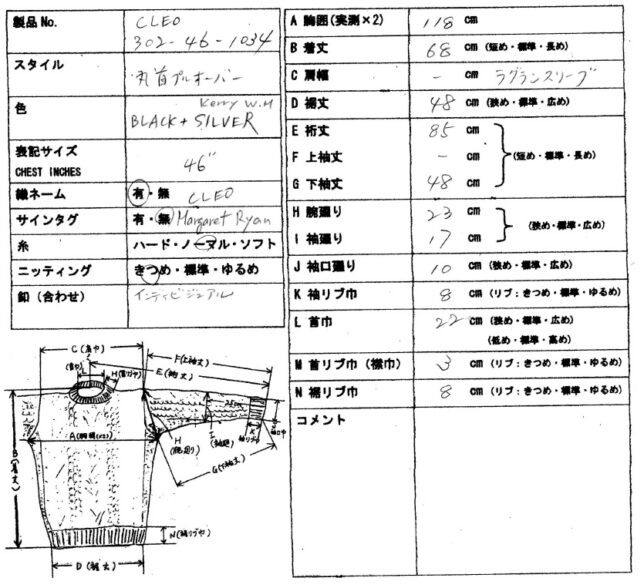 製品 No.
CLEO
302-46-1034
スタイル
丸首プルオーバー
色
Kerry W.M
BLACK + SILVER
表記サイズ
CHEST INCHES
46"
織ネーム
有・無 CLEO
サインタグ
有・無 Margaret Ryan
糸
ハード・ノーマル・ソフト
ニッティング
きつめ・標準・ゆるめ
釦（合わせ）
インディビジュアル
A 胸囲(実測×2) 118 cm
B 着丈 68 cm (短め・標準・長め)
C 肩幅 - cm ラグランスリーブ
D 裾丈 48 cm (狭め・標準・広め)
E 裄丈 85 cm
F 上袖丈 - cm (短め・標準・長め)
G 下袖丈 48 cm
H 腕廻り 23 cm
(狭め・標準・広め)
I 袖廻り 17 cm
J 袖口廻り 10 cm (狭め・標準・広め)
K 袖リブ巾 8 cm (リブ：きつめ・標準・ゆるめ)
L 首巾 22 cm (狭め・標準・広め)
(低め・標準・高め)
M 首リブ巾（襟巾） 3 cm (リブ：きつめ・標準・ゆるめ)
N 裾リブ巾 8 cm (リブ：きつめ・標準・ゆるめ)
コメント
C (肩巾)
F(上袖丈)
E(裄丈)
L
A(胸囲(×2))
B(着丈)
H
(腕廻り)
I
(袖廻)
K
袖リブ巾
G(下袖丈)
N(裾リブ巾)
D (裾丈)